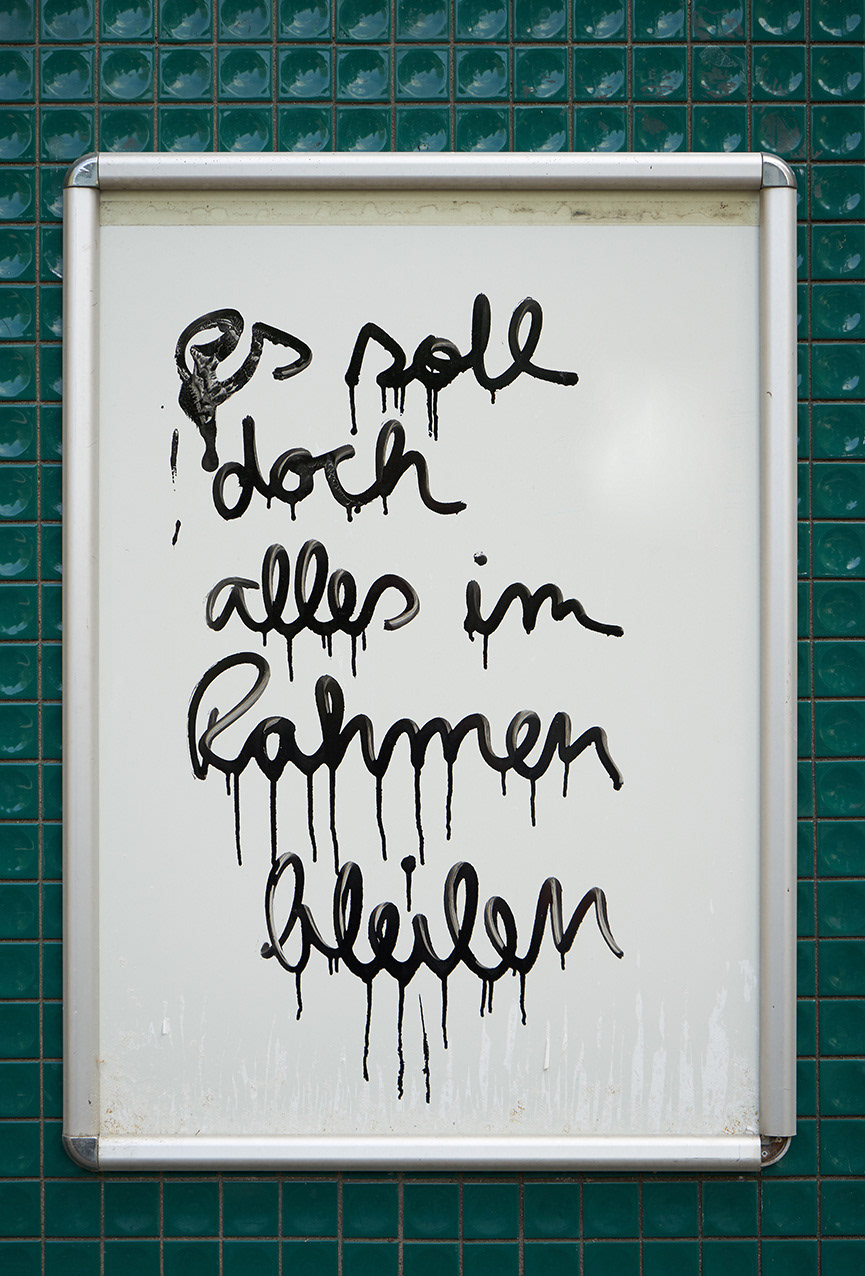 es soll
doch
alles im
Rahmen
bleiben